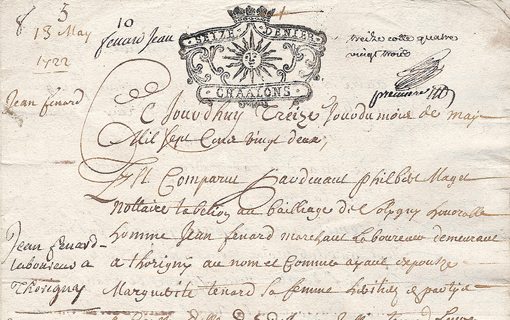 8 3
13 May
1722
10
fenard Jean
SEIZE DENIER
CHAALONS
treize cotte quatre
vingt trois
premiere
Jean fenard
Ce Jourdhuy Treize Jour du mois de may
Mil Sept Cent vingt deux,
Est Comparut Pardevant philbert Maget
Nottaire tabelion au bailliage de honorable
homme Jean fenard marchant laboureur demeurant
a thorigny au nom et Comme ayant epouzé
Marguerite tenard sa femme heritier e partye
Jean fenard
laboureur a
Thorigny